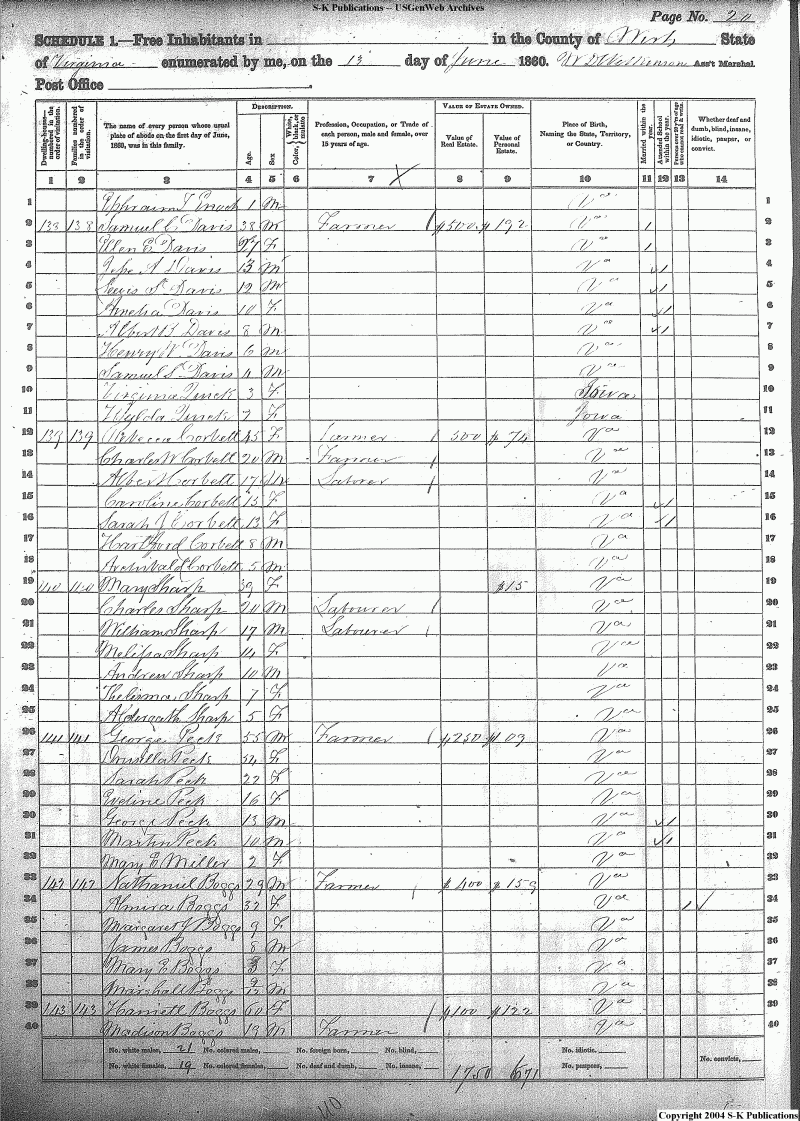 S-K Publications – USGenWeb Archives
Page No. 20
SCHEDULE 1.—Free Inhabitants in in the County of Wirt State
of Virginia enumerated by me, on the 13 day of June 1860. Ass't Marshal.
Post Office
Dwelling-houses—numbered in the order of visitation.
Families numbered in the order of visitation.
The name of every person whose usual place of abode on the first day of June, 1860, was in this family.
DESCRIPTION.
Age.
Sex
Color, White, black, or mulatto
Profession, Occupation, or Trade of each person, male and female, over 15 years of age.
VALUE OF ESTATE OWNED.
Value of Real Estate.
Value of Personal Estate.
Place of Birth, Naming the State, Territory, or Country.
Married within the year.
Attended School within the year.
Persons over 20 y'rs of age who cannot read & write.
Whether deaf and dumb, blind, insane, idiotic, pauper, or convict.
1 2 3 4 5 6 7 8 9 10 11 12 13 14
1 Ephraim T. Enoch 1 M Va 1
2 138 138 Samuel C Davis 38 M Farmer / $500 $192 Va / 2
3 Ellen E Davis 27 F Va / 3
4 A Davis 13 M Va /1 4
5 Lewis S. Davis 12 M Va /1 5
6 Amelia Davis 10 F Va /1 6
7 Albert B Davis 8 M Va /1 7
8 Henry W Davis 6 M Va 8
9 Samuel S Davis 4 M Va 9
10 Virginia Quick 3 F Iowa 10
11 Quick 7 F Iowa 11
12 139 139 Rebecca Corbett 45 F Farmer / 500 $74 Va 12
13 Charles W Corbett 20 M Farmer Va 13
14 Albert Corbett 17 M Laborer / Va 14
15 Caroline Corbett 15 F Va /1 15
16 Sarah J Corbett 13 F Va /1 16
17 Hartford Corbett 8 M Va 17
18 Archibald Corbett 5 M Va 18
19 140 140 Mary Sharp 39 F $15 Va 19
20 Charles Sharp 20 M Labourer / Va 20
21 William Sharp 17 M Labourer / Va 21
22 Melissa Sharp 14 F Va 22
23 Andrew Sharp 10 M Va 23
24 Thelisma Sharp 7 F Va 24
25 Sharp 5 F Va 25
26 141 141 George Peck 55 M Farmer / $250 $109 Va 26
27 Drusilla Peck 54 F Va 27
28 Sarah Peck 22 F Va 28
29 Eveline Peck 16 F Va 29
30 George Peck 13 M Va /1 30
31 Martin Peck 10 M Va /1 31
32 Mary E Miller 2 F Va 32
33 142 142 Nathaniel Boggs 29 M Farmer / $400 $159 Va 33
34 Almira Boggs 32 F Va / 34
35 Margaret J Boggs 9 F Va 35
36 James Boggs 8 M Va 36
37 Mary E Boggs 3 F Va 37
38 Marshall Boggs 9/12 M Va 38
39 143 143 Harriett Boggs 60 F / $100 $122 Va 39
40 Madison Boggs 19 M Farmer Va 40
No. white males, 21 No. colored males, No. foreign born, No. blind, No. idiotic,
No. white females, 19 No. colored females, No. deaf and dumb, No. insane, 1750 671 No. paupers, No. convicts,
Copyright 2004 S-K Publications